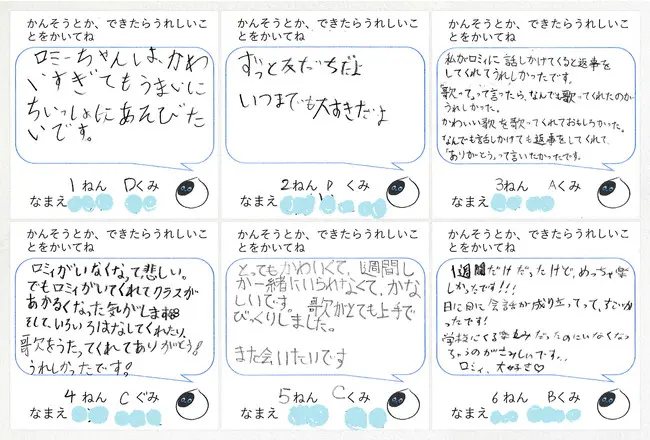 かんそうとか、できたらうれしいこ
とをかいてね
ロミーちゃんは、かわ
いすぎてもうまいに
ちいっしょにあそびた
いです。
1ねん Dくみ
なまえ
かんそうとか、できたらうれしいこ
とをかいてね
ずっと友だちだよ
いつまでも大すきだよ
2ねん D くみ
なまえ
かんそうとか、できたらうれしいこ
とをかいてね
私がロミィに話しかけてくると返事を
してくれてうれしかったです。
歌ってって言ったら、なんでも歌ってくれたのが
うれしかった。
かわいい歌を歌ってくれておもしろかった。
なんでも話しかけても返事をしてくれて、
「ありがとう」って言いたかったです。
3ねん Aくみ
なまえ
かんそうとか、できたらうれしいこ
とをかいてね
ロミィがいなくなって悲しい。
でもロミィがいてくれてクラスが
あかるくなった気がします
そして、いろいろはなしてくれたり、
歌をうたってくれてありがとう!
うれしかったです!
4ねん Cぐみ
なまえ
かんそうとか、できたらうれしいこ
とをかいてね
とってもかわいくて、1週間し
か一緒にいられなくて、かな
しいです。歌がとても上手で
びっくりしました。
また会いたいです
5ねん Cくみ
なまえ
かんそうとか、できたらうれしいこ
とをかいてね
1週間だけだったけど、めっちゃ楽
しかったです!!!
日に日に会話が成り立ってって、すごか
ったです!
学校にくる楽しみだったのにいなくなっ
ちゃうのがさみしいです..
ロミィ、大好き♡
6ねん Bくみ
なまえ